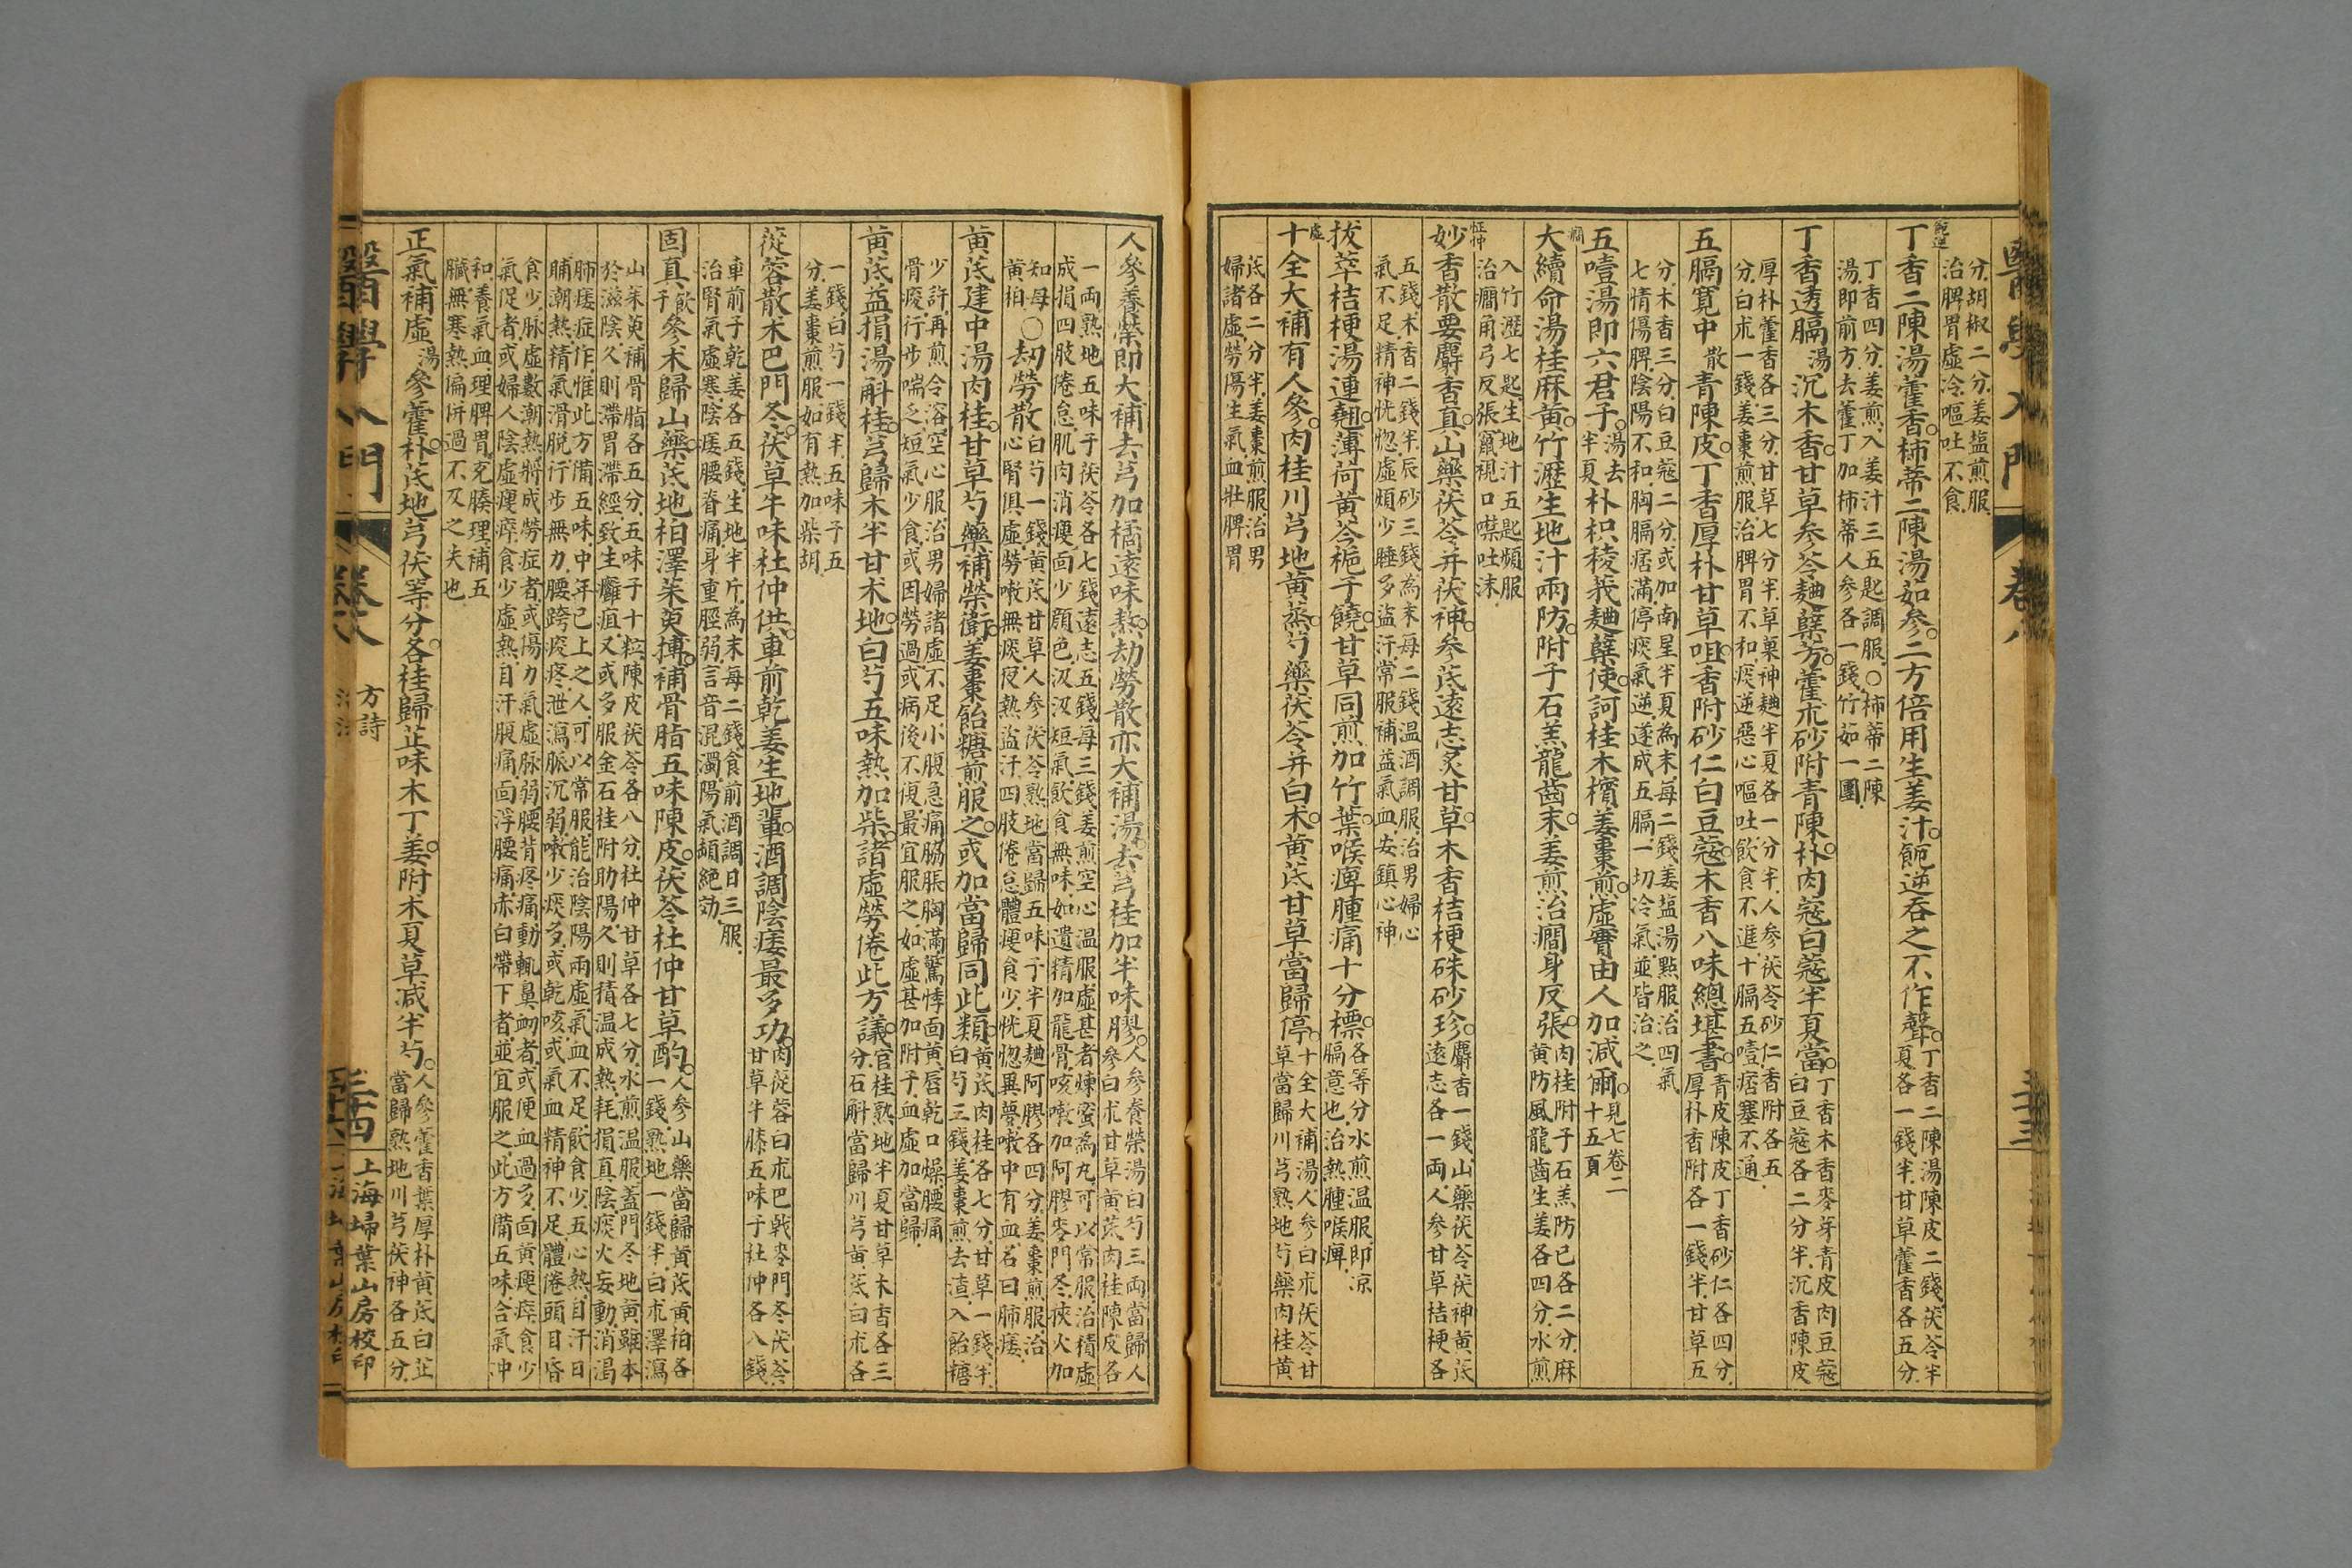 醫學入門
卷八
分胡椒二分姜塩煎服
治脾胃虛冷嘔吐不食
丁香二陳湯藿香柿蒂二陳湯如參二方倍用生姜汁呃逆吞之不作聲
丁香二陳湯陳皮二錢茯苓半
夏各一錢半甘草藿香各五分
丁香四分姜煎入姜汁三五匙調服○柿蒂二陳
湯即前方去藿丁加柿蒂人參各一錢竹茹一團
丁香透膈湯沉木香甘草參苓麯蘗芳藿朮砂附青陳朴肉蔻白蔻半夏當
丁香木香麥芽青皮肉豆蔻
白豆蔻各二分半沉香陳皮
厚朴藿香各三分甘草七分半草菓神麯半夏各一分半人參茯苓砂仁香附各五
分白朮一錢姜棗煎服治脾胃不和痰逆惡心嘔吐飲食不進十膈五噎痞塞不通
五膈寬中散青陳皮丁香厚朴甘草咀香附砂仁白豆蔻木香八味總堪書
青皮陳皮丁香砂仁各四分
厚朴香附各一錢半甘草五
分木香三分白豆蔻二分或加南星半夏為末每二錢姜塩湯點服治四氣
七情傷脾陰陽不和胸膈痞滿停痰氣逆遂成五膈一切冷氣並皆治之
五噎湯即六君子湯去半夏朴枳稜莪麯蘗使訶桂木檳姜棗煎虛實由人加減爾
見七卷二
十五頁
癇
大續命湯桂麻黃竹瀝生地汁兩防附子石羔龍齒末姜煎治癇身反張
肉桂附子石羔防已各二分麻
黃防風龍齒生姜各四分水煎
入竹瀝七匙生地汁五匙頻服
治癇角弓反張竄視口噤吐沫
怔忡
妙香散要麝香真山藥茯苓并茯神參芪遠志炙甘草木香桔梗硃砂珍
麝香一錢山藥茯苓茯神黃芪
遠志各一兩人參甘草桔梗各
五錢木香二錢半辰砂三錢為末每二錢温酒調服治男婦心
氣不足精神恍惚虛煩少睡多盜汗常服補益氣血安鎮心神
拔萃桔梗湯連翹薄荷黃芩梔子饒甘草同煎加竹葉喉痺腫痛十分標
各等分水煎温服即凉
膈意也治熱腫喉痺
虛
十全大補有人參肉桂川芎地黃蒸芍藥茯苓并白朮黃芪甘草當歸停
十全大補湯人參白朮茯苓甘
草當歸川芎熟地芍藥肉桂黃
芪各二分半姜棗煎服治男
婦諸虛勞傷生氣血壯脾胃
人參養榮即大補去芎加橘遠味熬劫勞散亦大補湯去芎桂加半味膠
人參養榮湯白芍三兩當歸人
參白朮甘草黃芪肉桂陳皮各
一兩熟地五味子茯苓各七錢遠志五錢每三錢姜煎空心温服虛甚者煉蜜為丸可以常服治積虛
成損四肢倦怠肌肉消瘦面少顏色汲汲短氣飲食無味如遺精加龍骨咳嗽加阿膠麥門冬挾火加
知母
黃柏○劫勞散白芍一錢黃芪甘草人參茯苓熟地當歸五味子半夏麯阿膠各四分姜棗煎服治
心腎俱虛勞嗽無痰夜熱盜汗四肢倦怠體瘦食少恍惚異夢嗽中有血名曰肺痿
黃芪建中湯肉桂甘草芍藥補榮衛姜棗飴糖煎服之或加當歸同此類
黃芪肉桂各七分甘草一錢半
白芍三錢姜棗煎去渣入飴糖
少許再煎令溶空心服治男婦諸虛不足小腹急痛脇脹胸滿驚悸面黃唇乾口燥腰痛
骨痠行步喘乏短氣少食或因勞過或病後不復最宜服之如虛甚加附子血虛加當歸
黃芪益損湯斛桂芎歸木半甘朮地白芍五味熱加柴諸虛勞倦此方議
官桂熟地半夏甘草木香各三
分石斛當歸川芎黃芪白朮各
一錢白芍一錢半五味子五
分姜棗煎服如有熱加柴胡
蓯蓉散朮巴門冬茯草牛味杜仲供車前乾姜生地輩酒調陰痿最多功
肉蓯蓉白朮巴戟麥門冬茯苓
甘草牛膝五味子杜仲各八錢
車前子乾姜各五錢生地半斤為末每二錢食前酒調日三服
治腎氣虛寒陰痿腰脊痛身重脛弱言音混濁陽氣頓絕効
固真飲子參朮歸山藥芪地柏澤茱萸搏補骨脂五味陳皮茯苓杜仲甘草酌
人參山藥當歸黃芪黃柏各
一錢熟地一錢半白朮澤瀉
山茱萸補骨脂各五分五味子十粒陳皮茯苓各八分杜仲甘草各七分水煎温服蓋門冬地黃雖本
於滋陰久則滯胃滯經致生癰疽又或多服金石桂附助陽久則積温成熱耗損真陰痰火妄動消渴
肺痿症作惟此方備五味中年已上之人可以常服能治陰陽兩虛氣血不足飲食少五心熱自汗日
晡潮熱精氣滑脫行步無力腰跨痠疼泄瀉脈沉弱嗽少痰多或乾咳或氣血精神不足體倦頭目昏
食少脉虛數潮熱將成勞症者或傷力氣虛脉弱腰背疼痛動輒鼻衄者或便血過多面黃瘦瘁食少
氣促者或婦人陰虛瘦瘁食少虛熱自汗腹痛面浮腰痛赤白帶下者並宜服之此方備五味合氣冲
和養氣血理脾胃充腠理補五
臟無寒熱偏併過不及之失也
正氣補虛湯參藿朴芪地芎茯等分各桂歸芷味木丁姜附朮夏草減半芍
人參藿香葉厚朴黃芪白芷
當歸熟地川芎茯神各五分
醫學入門
卷八
方詩
上海埽葉山房校印